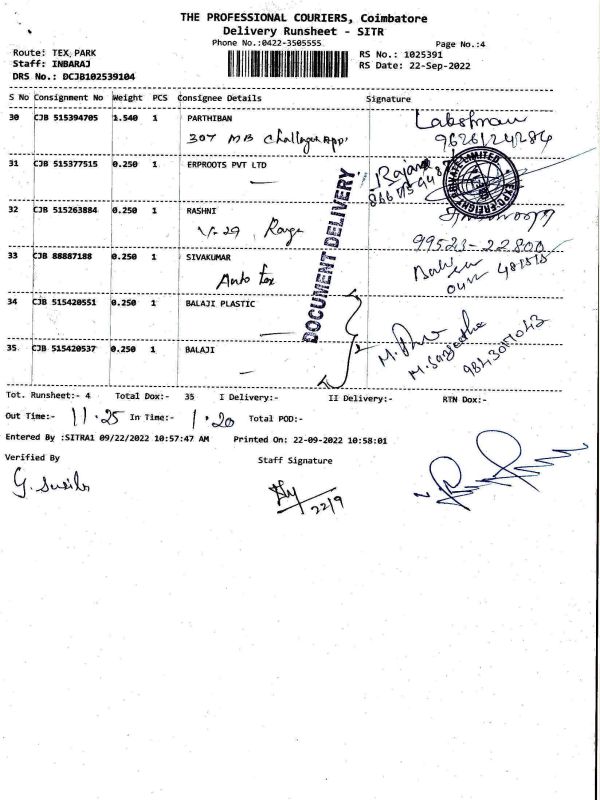 THE PROFESSIONAL COURIERS, Coimbatore
Delivery Runsheet - SITR
Phone No.:0422-3505555
Page No.:4
Route: TEX PARK
Staff: INBARAJ
DRS No.: DCJB102539104
RS No.: 1025391
RS Date: 22-Sep-2022
S No Consignment No Weight PCS Consignee Details Signature
30 CJB 515394705 1.540 1 PARTHIBAN Lakshman
307 MB 9626124284
31 CJB 515377515 0.250 1 ERPROOTS PVT LTD
EXPO FREIGHT PRIVATE LIMITED
DOCUMENT DELIVERY
32 CJB 515263884 0.250 1 RASHNI
V-29 99523-22800
33 CJB 88887188 0.250 1 SIVAKUMAR
Auto Tex
34 CJB 515420551 0.250 1 BALAJI PLASTIC
2
35 CJB 515420537 0.250 1 BALAJI
Tot. Runsheet:- 4 Total Dox:- 35 I Delivery:- II Delivery:- RTN Dox:-
Out Time:- 11.25 In Time:- 1.20 Total POD:-
Entered By :SITRA1 09/22/2022 10:57:47 AM Printed On: 22-09-2022 10:58:01
Verified By Staff Signature
22/9